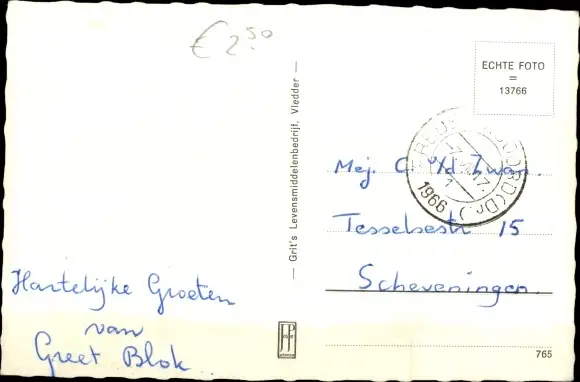 € 2.50
ECHTE FOTO
=
13766
— Grit's Levensmiddelenbedrijf, Vledder —
1966
(Dr.)
Mej. C. v/d Zwan.
Tesselsestr 15
Scheveningen.
Hartelijke Groeten
van
Greet Blok
JP
765